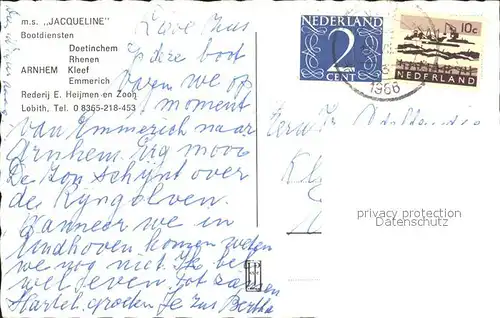 m.s. „JACQUELINE"
Bootdiensten
Doetinchem
Rhenen
ARNHEM Kleef
Emmerich
Rederij E. Heijmen en Zoon
Lobith, Tel. 0 8365-218-453
NEDERLAND
2
CENT
10c
NEDERLAND
1966
Lieve Zus
boot
varen we op
moment
van Emmerich naar
Arnhem. Erg mooi
De zon schijnt over
de Rijngolven.
Wanneer we in
Eindhoven komen weten
we nog niet. Ik bel
wel even. tot ziens
Hartel. groeten Je zus Bertha
privacy protection
Datenschutz